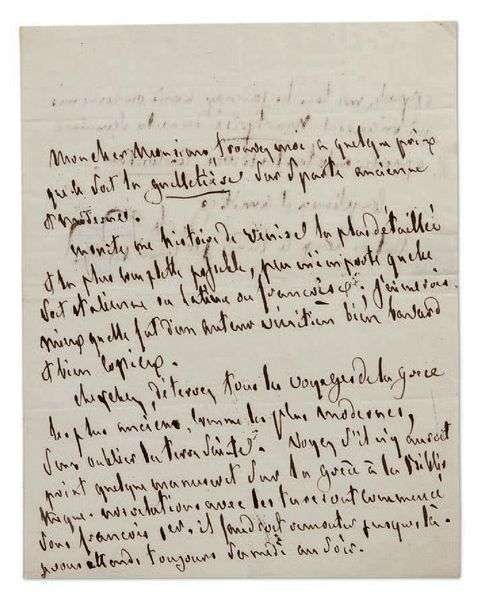 Mon cher Monsieur, trouvez moi, a quelque prix
que ce soit la guilletière sur Sparte ancienne
et moderne.
une histoire de Venise la plus detaillée
et la plus complette possible, peu m'importe quelle
soit italienne ou latine ou françoise j'aimerois
mieux quelle fut d'un auteur vénitien bien bavard
et bien copieux.
cherchez, déterrez tous les voyages de la Grèce
les plus anciens, comme les plus modernes,
sans oublier la terre Sainte. Voyez s'il n'y auroit
point quelque manuscrit sur la Grèce à la Biblio
thèque. nos relations avec les turcs ont commencé
sous françois 1er. il faudroit remonter jusques là.
je vous attends toujours Samedi au Soir.